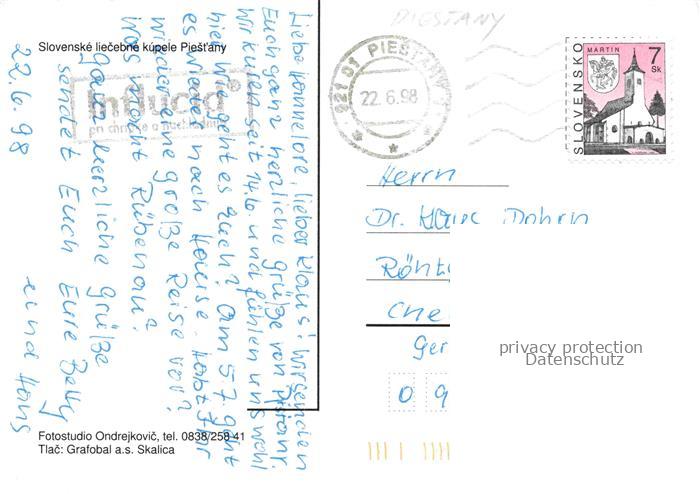 Slovenské liečebné kúpele Piešťany
PIEŠŤANY
921 01 PIEŠŤANY
22.6.98
SLOVENSKO
MARTIN
7
Sk
influcid®
pri chrípke a nachladnutí
Liebe Hannelore, lieber Klaus! Wir senden
Euch ganz herzliche Grüße von Pistany.
Wir kuren seit 14.6. und fühlen uns wohl
hier. Wie geht es Euch? Am 5.7. geht
es wieder nach Hause. Habt Ihr
wieder eine große Reise vor?
Was macht Rübenau?
Ganz herzliche Grüße
sendet Euch Eure Betty
22.6.98 und Hans
Herrn
Dr. Klaus Dohrn
Rönt
Che
Ger
0 9
privacy protection
Datenschutz
Fotostudio Ondrejkovič, tel. 0838/258 41
Tlač: Grafobal a.s. Skalica